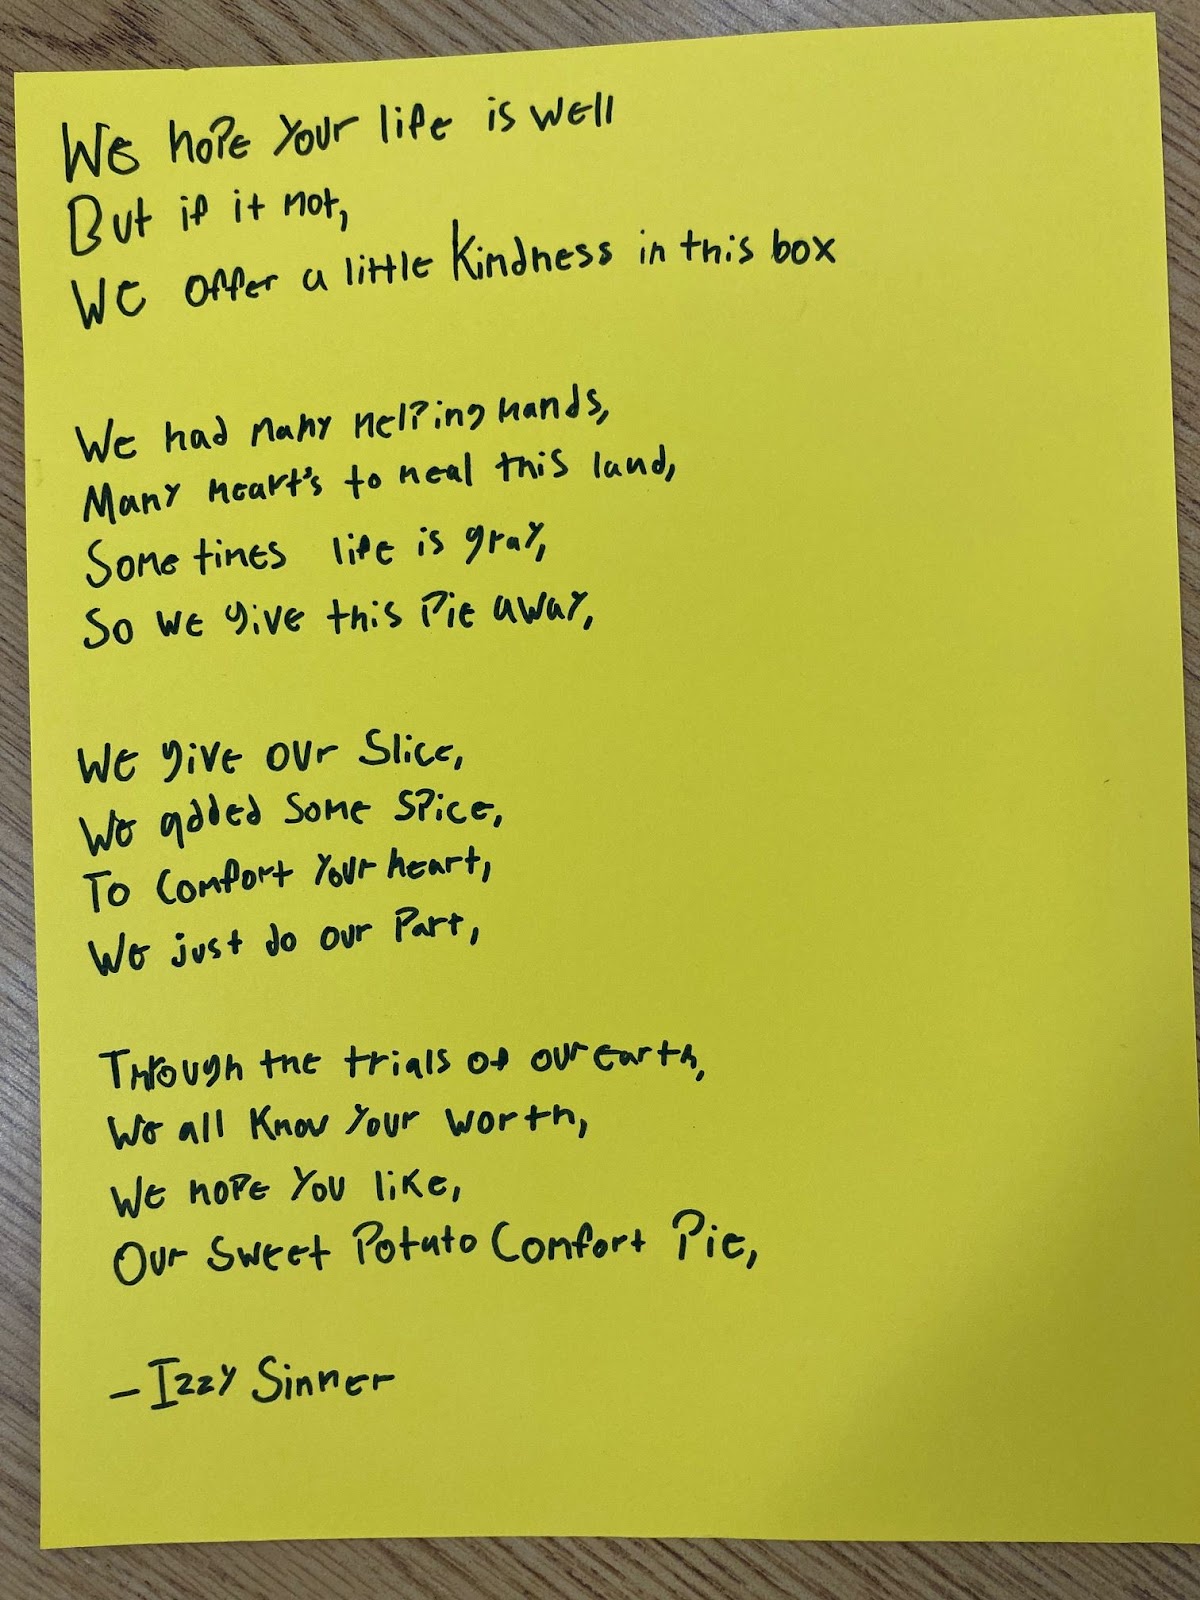 We hope your life is well
But if it not,
We offer a little kindness in this box
We had many helping hands,
Many heart's to heal this land,
Sometimes life is gray,
So we give this Pie away,
We give our Slice,
We added some spice,
To comfort your heart,
We just do our Part,
Through the trials of our earth,
We all know your worth,
We hope you like,
Our sweet Potato Comfort Pie,
- Izzy Sinner